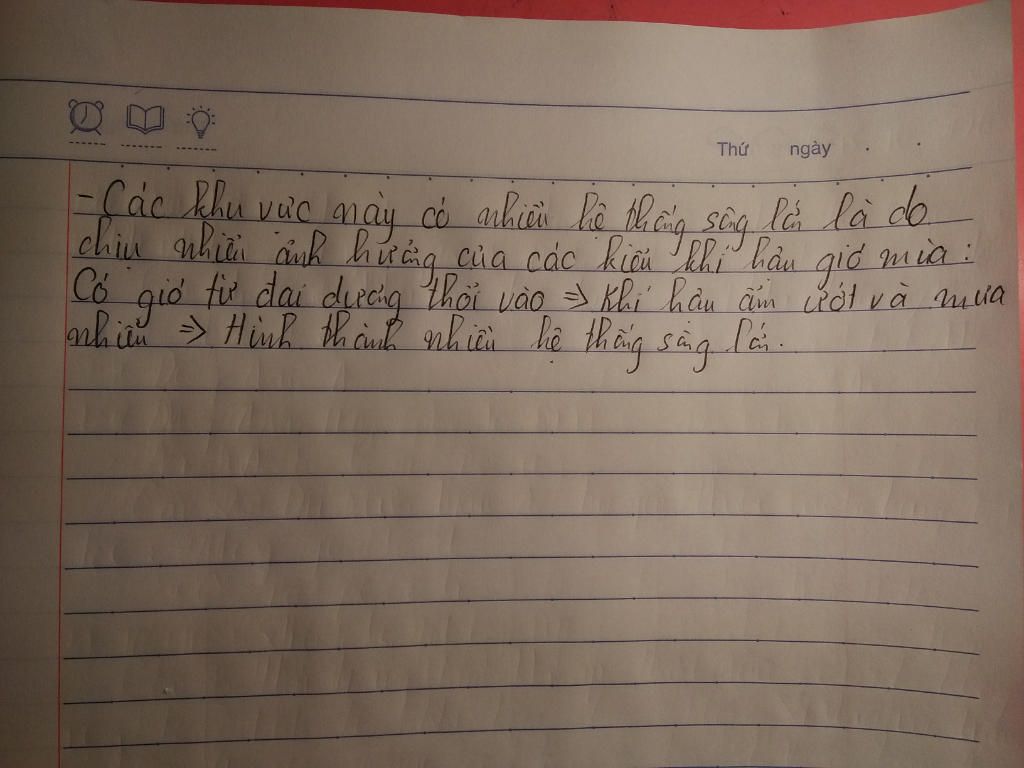 Thứ ngày . .
- Các khu vực này có nhiều hệ thống sông lớn là do
chịu nhiều ảnh hưởng của các kiểu khí hậu gió mùa :
Có gió từ đại dương thổi vào => khí hậu ẩm ướt và mưa
nhiều => Hình thành nhiều hệ thống sông lớn.